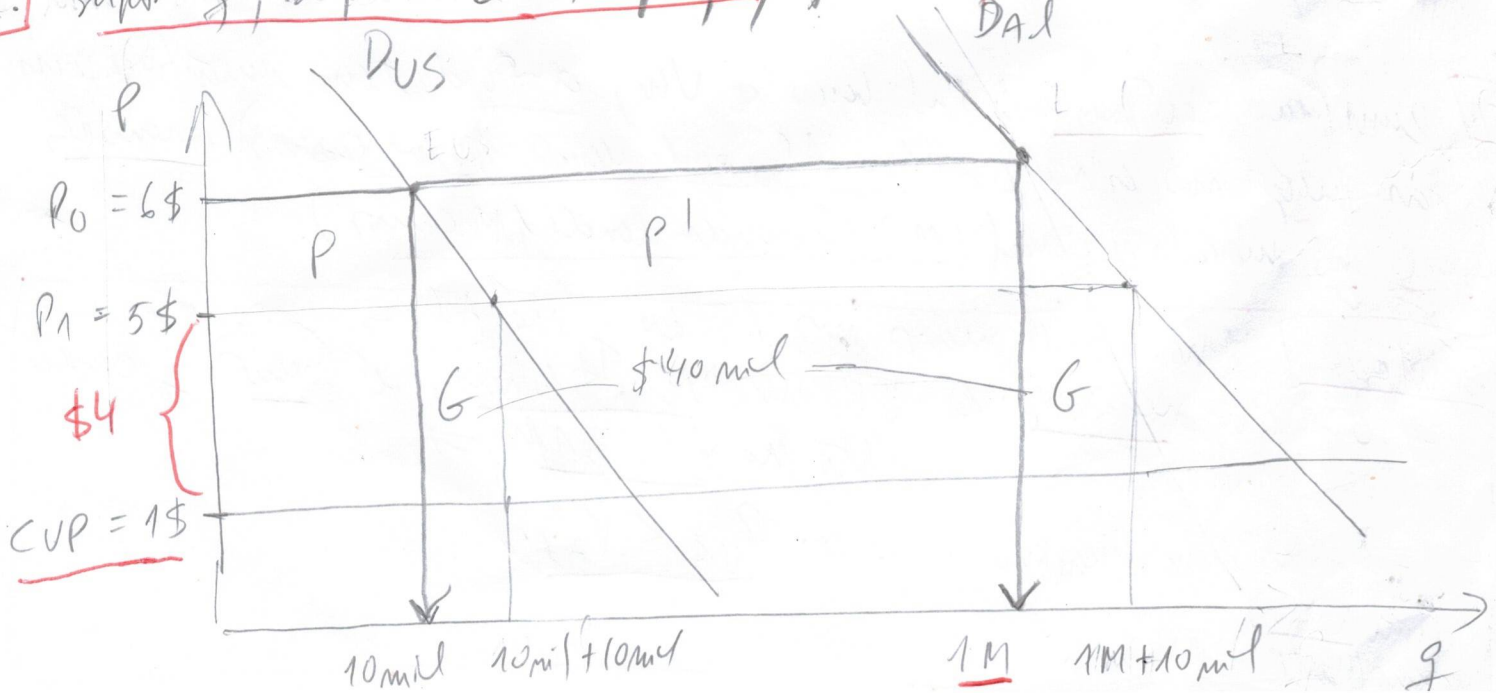 DUS
DAl
P
P0 = 6$
P P'
P1 = 5$
$4
G $40 mil G
CUP = 1$
10 mil 10 mil + 10 mil 1 M 1M + 10 mil q